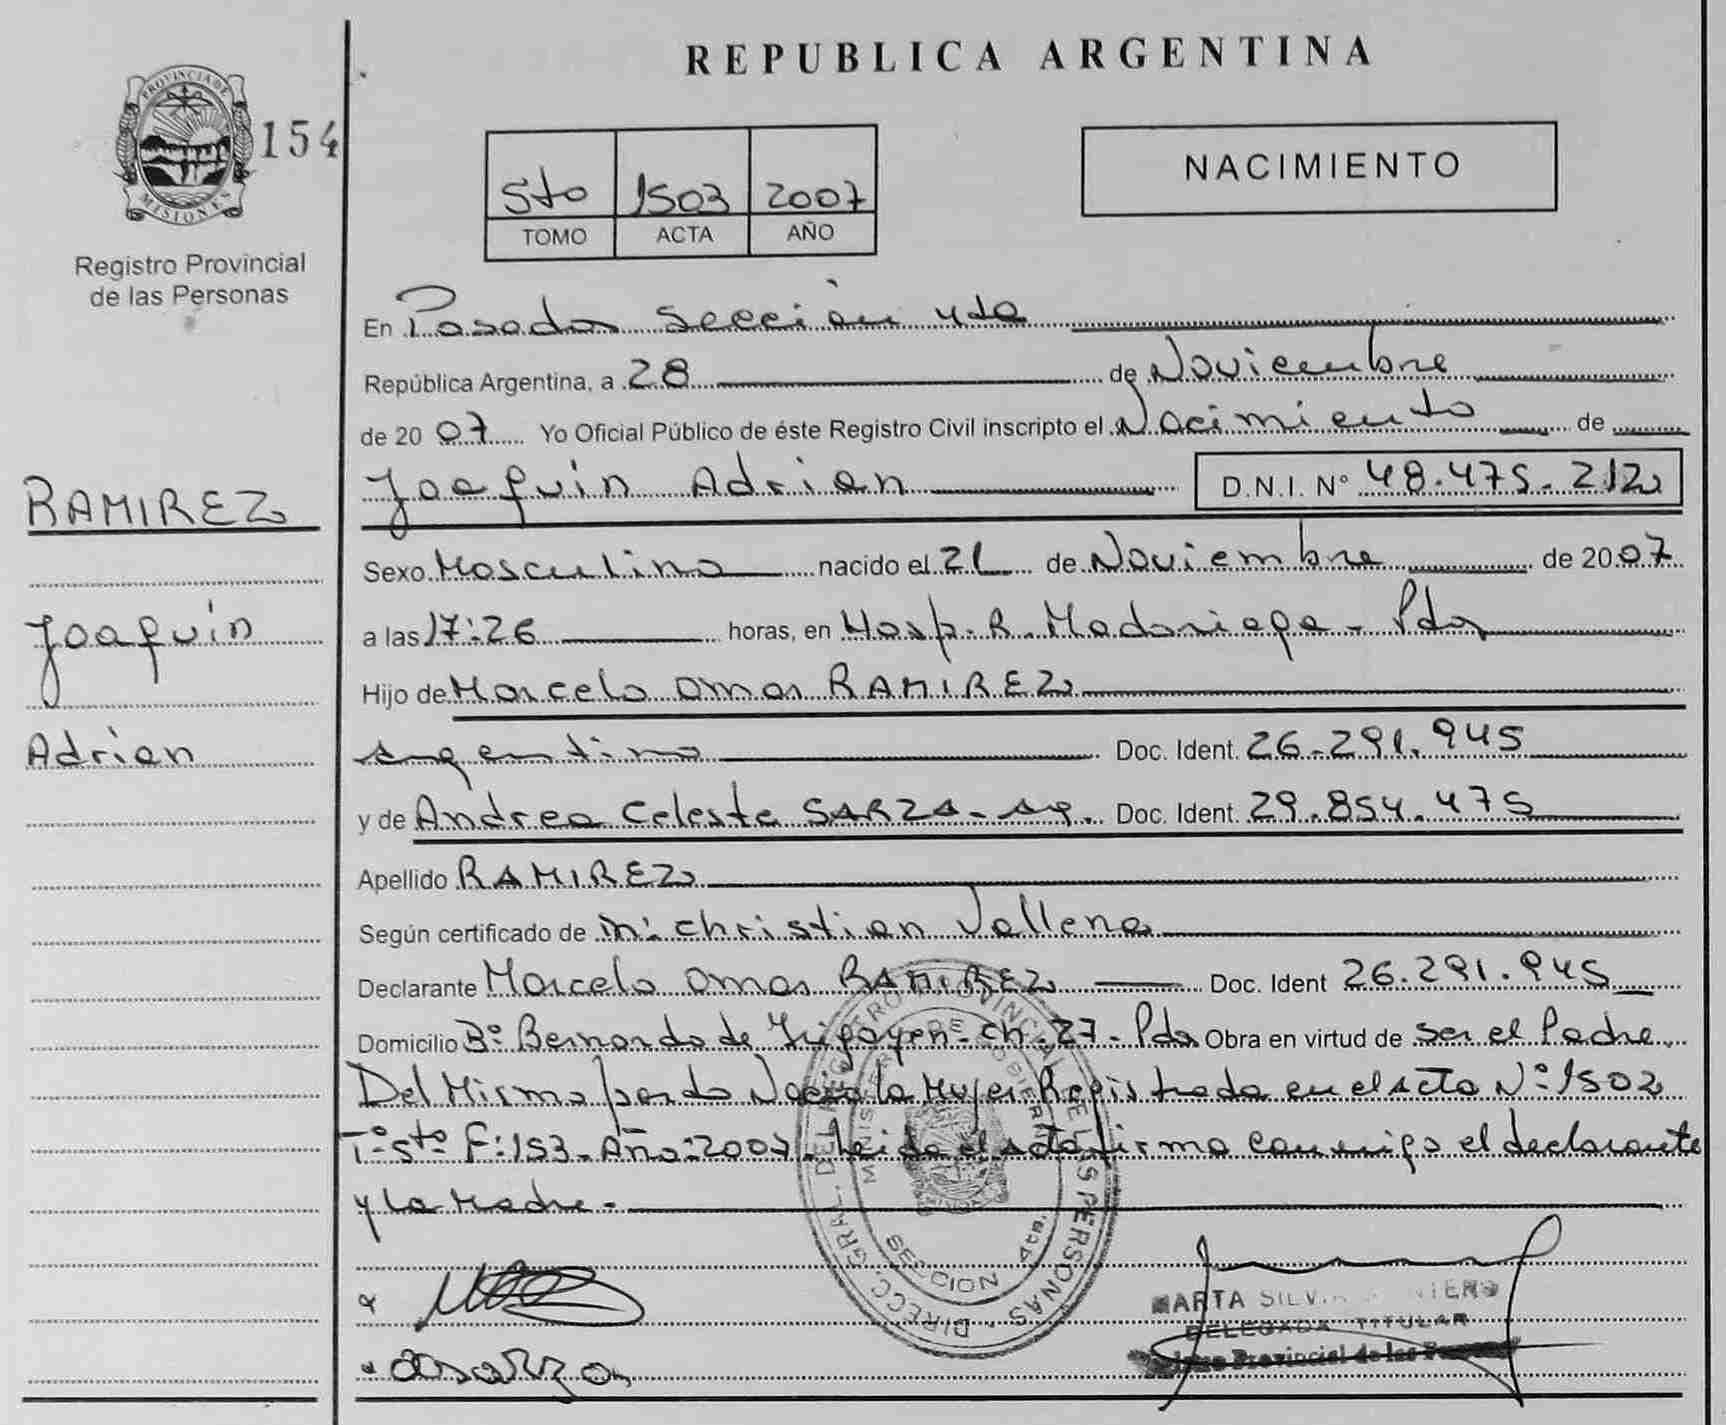 REPUBLICA ARGENTINA
PROVINCIA DE
MISIONES
154
Registro Provincial
de las Personas
5to 1503 2007
TOMO ACTA AÑO
NACIMIENTO
En Posadas Sección 4ta
República Argentina, a 28 de Noviembre
de 2007 Yo Oficial Público de éste Registro Civil inscripto el Nacimiento de
RAMIREZ
Joaquin
Adrian
Joaquin Adrian D.N.I. N° 48.475.212
Sexo Masculino nacido el 21 de Noviembre de 2007
a las 17:26 horas, en Hosp. R. Madariaga - Pdas
Hijo de Marcelo Omar RAMIREZ
Argentino Doc. Ident. 26.291.945
y de Andrea Celeste SARZA - Arg. Doc. Ident. 29.854.475
Apellido RAMIREZ
Según certificado de Christian Vallena
Declarante Marcelo Omar RAMIREZ Doc. Ident 26.291.945
Domicilio B° Bernardo de Yrigoyen - ch. 27 - Pdas Obra en virtud de ser el Padre.
Del Mismo parto Nació la Mujer Registrada en el acta N° 1502
T° 5to F: 153 - Año: 2007. Leida el acta firma conmigo el declarante
y la Madre. -
DIRECC. GRAL. DEL REGISTRO PROVINCIAL DE LAS PERSONAS
MINISTERIO DE GOBIERNO
SECCION 4ta.
MARTA SILVIA
DELEGADA TITULAR
Provincial de las